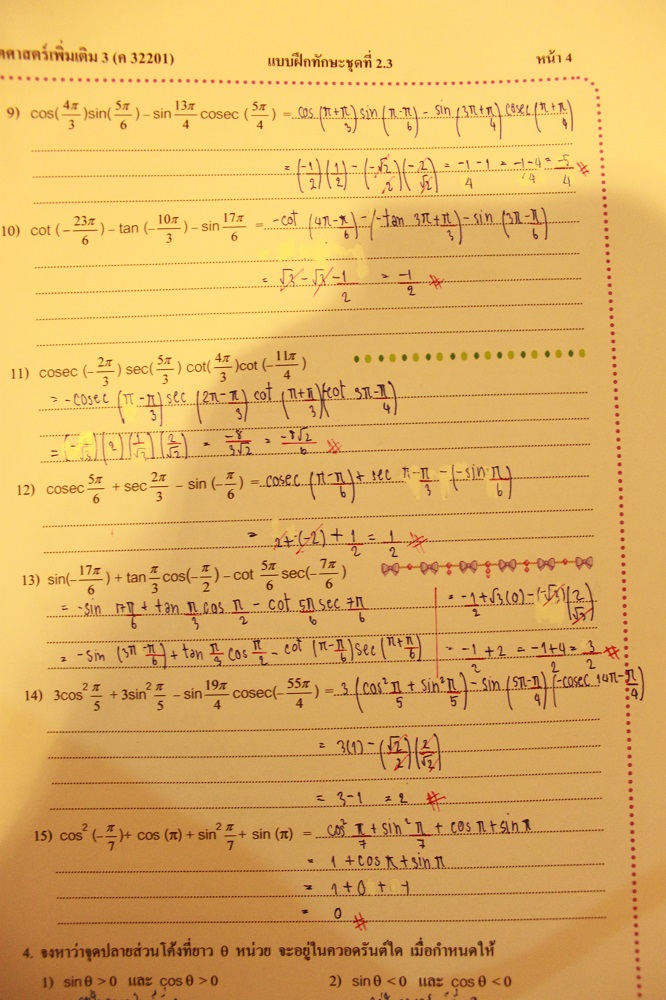 ตศาสตร์เพิ่มเติม 3 (ค 32201) แบบฝึกทักษะชุดที่ 2.3 หน้า 4
9) cos(4π/3)sin(5π/6) – sin 13π/4 cosec (5π/4) = cos (π+π/3) sin (π-π/6) - sin (3π+π/4) cosec (π+π/4)
= (-1/2)(1/2) - (-√2/2)(-2/√2) = -1/4 - 1 = -1-4/4 = -5/4 #
10) cot (–23π/6) – tan (–10π/3) – sin 17π/6 = -cot (4π-π/6) - (-tan 3π+π/3) - sin (3π-π/6)
= √3 - √3 - 1/2 = -1/2 #
11) cosec (–2π/3) sec(5π/3) cot(4π/3)cot (–11π/4)
= -cosec (π-π/3) sec (2π-π/3) cot (π+π/3)(cot 3π-π/4)
(2)(1/√3)(2/√2) = -8/3√2 = -8√2/6 #
12) cosec 5π/6 + sec 2π/3 – sin (–π/6) = cosec (π-π/6) + sec π-π/3 - (-sin π/6)
= 2+(-2) + 1/2 = 1/2 #
13) sin(–17π/6) + tan π/3 cos(–π/2) – cot 5π/6 sec(–7π/6)
= -sin 17π/6 + tan π/3 cos π/2 - cot 5π/6 sec 7π/6 = -1/2 + √3(0) - (-√3)(2/√3)
= -sin (3π-π/6) + tan π/3 cos π/2 - cot (π-π/6) sec (π+π/6) = -1/2 + 2 = -1+4/2 = 3/2 #
14) 3cos² π/5 + 3sin² π/5 – sin 19π/4 cosec(–55π/4) = 3 (cos² π/5 + sin² π/5) - sin (5π-π/4)(-cosec 14π-π/4)
= 3(1) - (√2/2)(2/√2)
= 3-1 = 2 #
15) cos² (–π/7)+ cos (π) + sin² π/7 + sin (π) = cos² π/7 + sin² π/7 + cos π + sin π
= 1 + cos π + sin π
= 1 + 0
= 0 #
4. จงหาว่าจุดปลายส่วนโค้งที่ยาว θ หน่วย จะอยู่ในควอดรันต์ใด เมื่อกำหนดให้
1) sin θ > 0 และ cos θ > 0 2) sin θ < 0 และ cos θ < 0